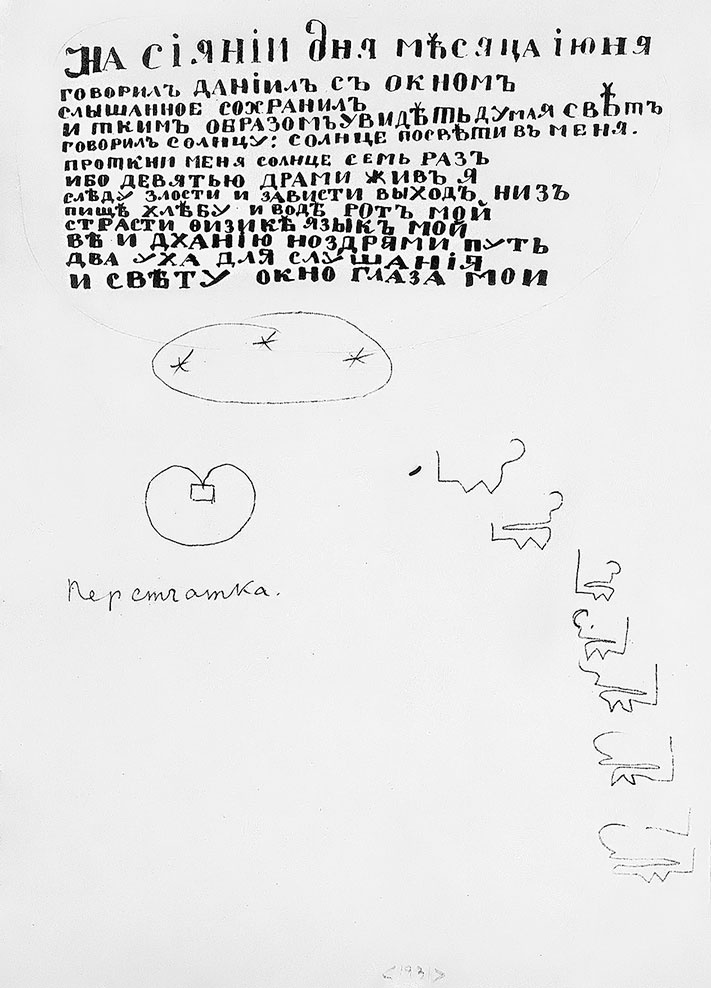 НА СІЯНІИ ДНЯ МѢСЯЦА ІЮНЯ
ГОВОРИЛЪ ДАНІИЛЪ СЪ ОКНОМЪ
СЛЫШАННОЕ СОХРАНИЛЪ
И ТКИМЪ ОБРАЗОМЪ УВИДѢТЬ ДУМАЯ СВѢТЪ
ГОВОРИЛЪ СОЛНЦУ: СОЛНЦЕ ПОСВѢТИ ВЪ МЕНЯ.
ПРОТКНИ МЕНЯ СОЛНЦЕ СЕМЬ РАЗЪ
ИБО ДЕВЯТЬЮ ДРАМИ ЖИВЪ Я
СЛѢДУ ЗЛОСТИ И ЗАВИСТИ ВЫХОДЪ НИЗЪ
ПИЩѢ ХЛѢБУ И ВОДѢ РОТЪ МОЙ
СТРАСТИ ѲИЗИКѢ ЯЗЫКЪ МОЙ
ВѢ И ДХАНІЮ НОЗДРЯМИ ПУТЬ
ДВА УХА ДЛЯ СЛУШАНІЯ
И СВѢТУ ОКНО ГЛАЗА МОИ
Персчатка.
<1931>